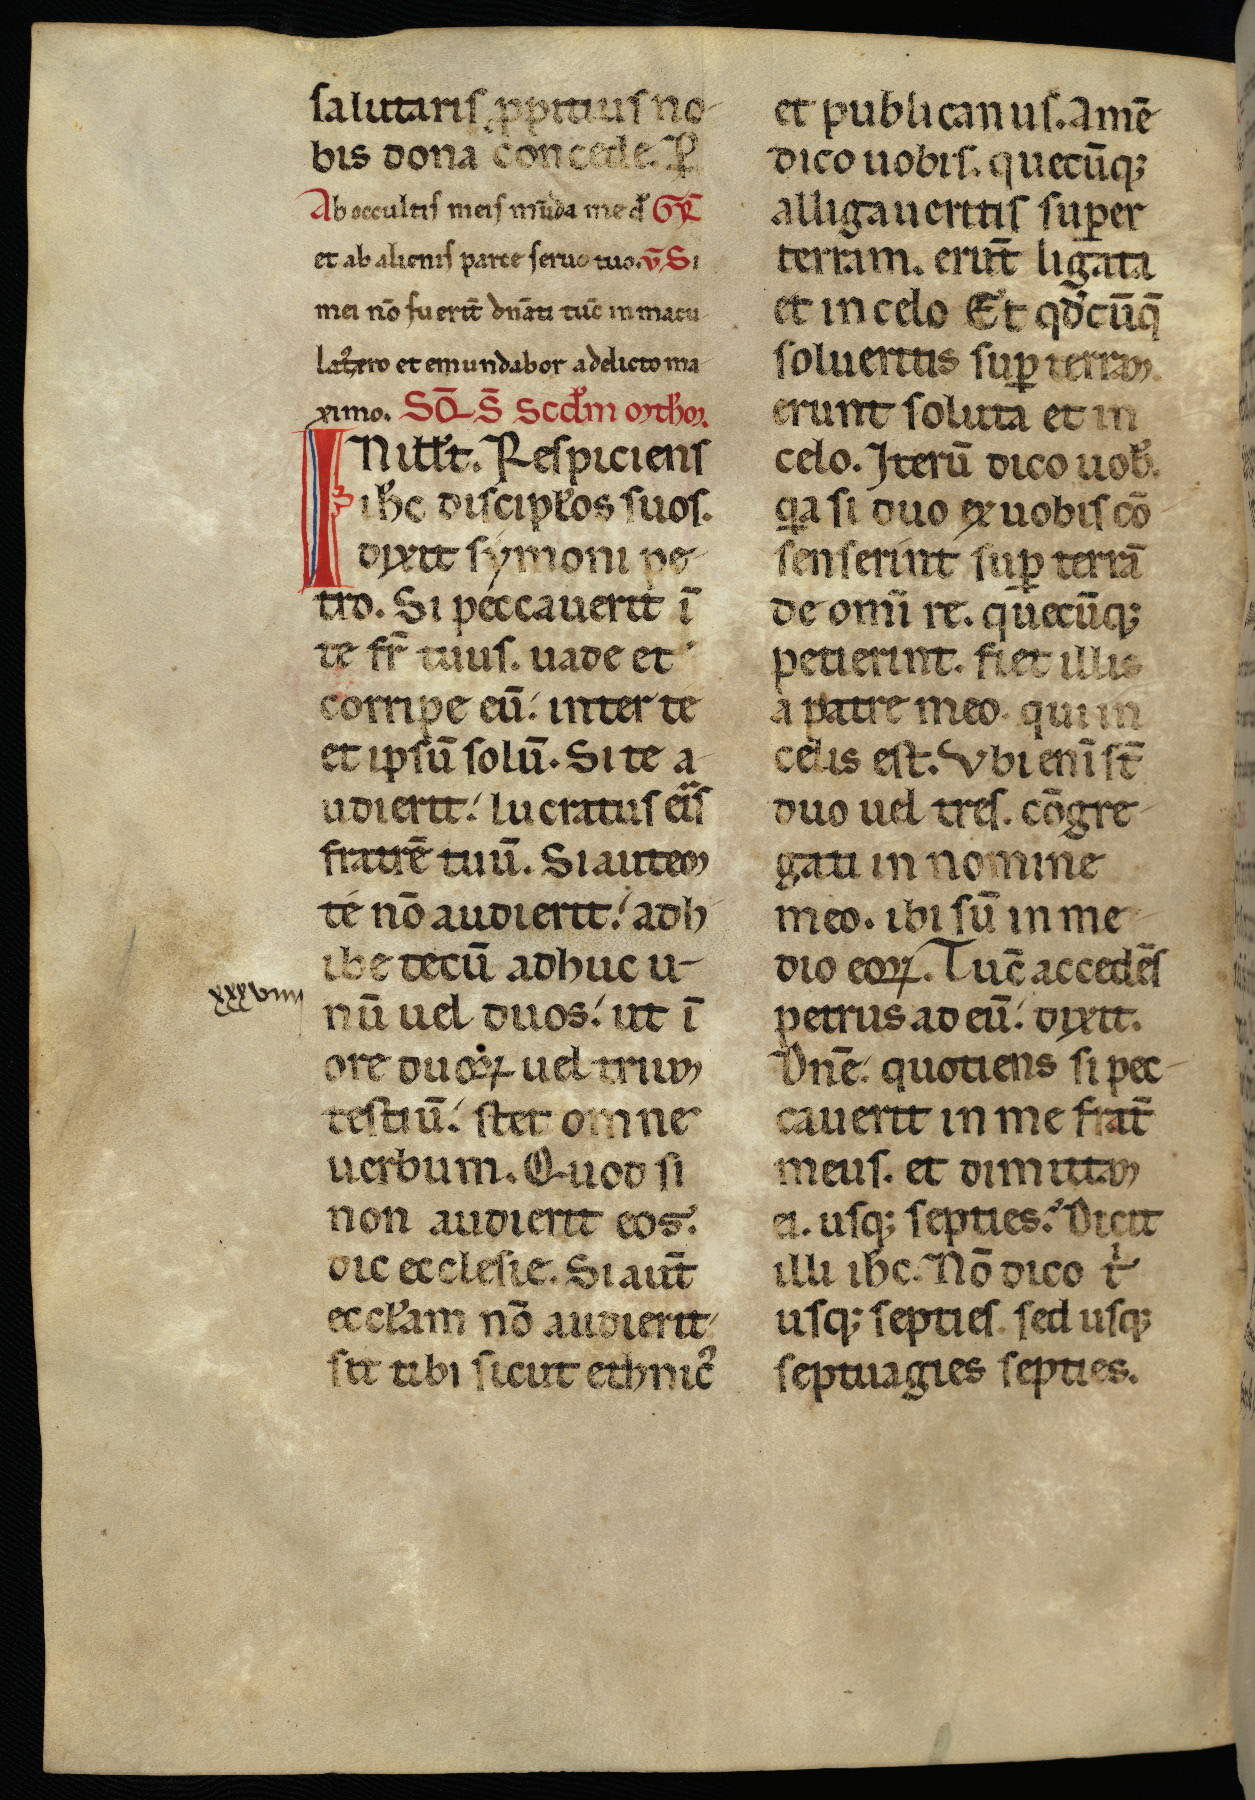 salutaris ꝓpitius no
bis dona concede. P̄
Ab occultis meis mūda me dn̄e GR̄
et ab alienis parce seruo tuo. v̄ Si
mei nō fuerīt dn̄ati tūc inmacu
lat᷒ ero et emundabor a delicto ma
ximo. SC̄D S̄ Scdm̄ Mathm̄.
IN ill̄t. Respiciens
ih̄c discipl̄os suos.
dixit symoni pe
tro. Si peccauerit ī
te fr̄ tuus. uade et
corripe eū. inter te
et ipsū solū. Si te a
udierit. lucratus eīs
fratrē tuū. Si autem
te nō audierit. adh
ibe tecū adhuc u-
xxxviiii
nū uel duos. ut ī
ore duoꝝ uel trium
testiū. stet omne
uerbum. Quod si
non audierit eos.
dic ecclesie. Si aut̄
eccl̄am nō audierit
sit tibi sicut ethnic᷒
et publicanus. Amē
dico uobis. quecūq;
alligaueritis super
terram. erūt ligata
et in celo Et qd̄cūq̄
solueritis suꝑ terram.
erunt soluta et in
celo. Iterū dico uob̄.
qa si duo ex uobis cō
senserint suꝑ terrā
de omī re. quecūq;
petierint. fiet illis
a patre meo. qui in
celis est. Vbi enī st̄
duo uel tres. cōgre
gati in nomine
meo. ibi sū in me
dio eoꝝ. Tūc accedēs
petrus ad eū. dixit.
Dn̄e. quotiens si pec
cauerit in me frat̄
meus. et dimittam
ei. usq; septies. Dicit
illi ih̄c. Nō dico tⁱ
usq; septies. sed usq;
septuagies septies.